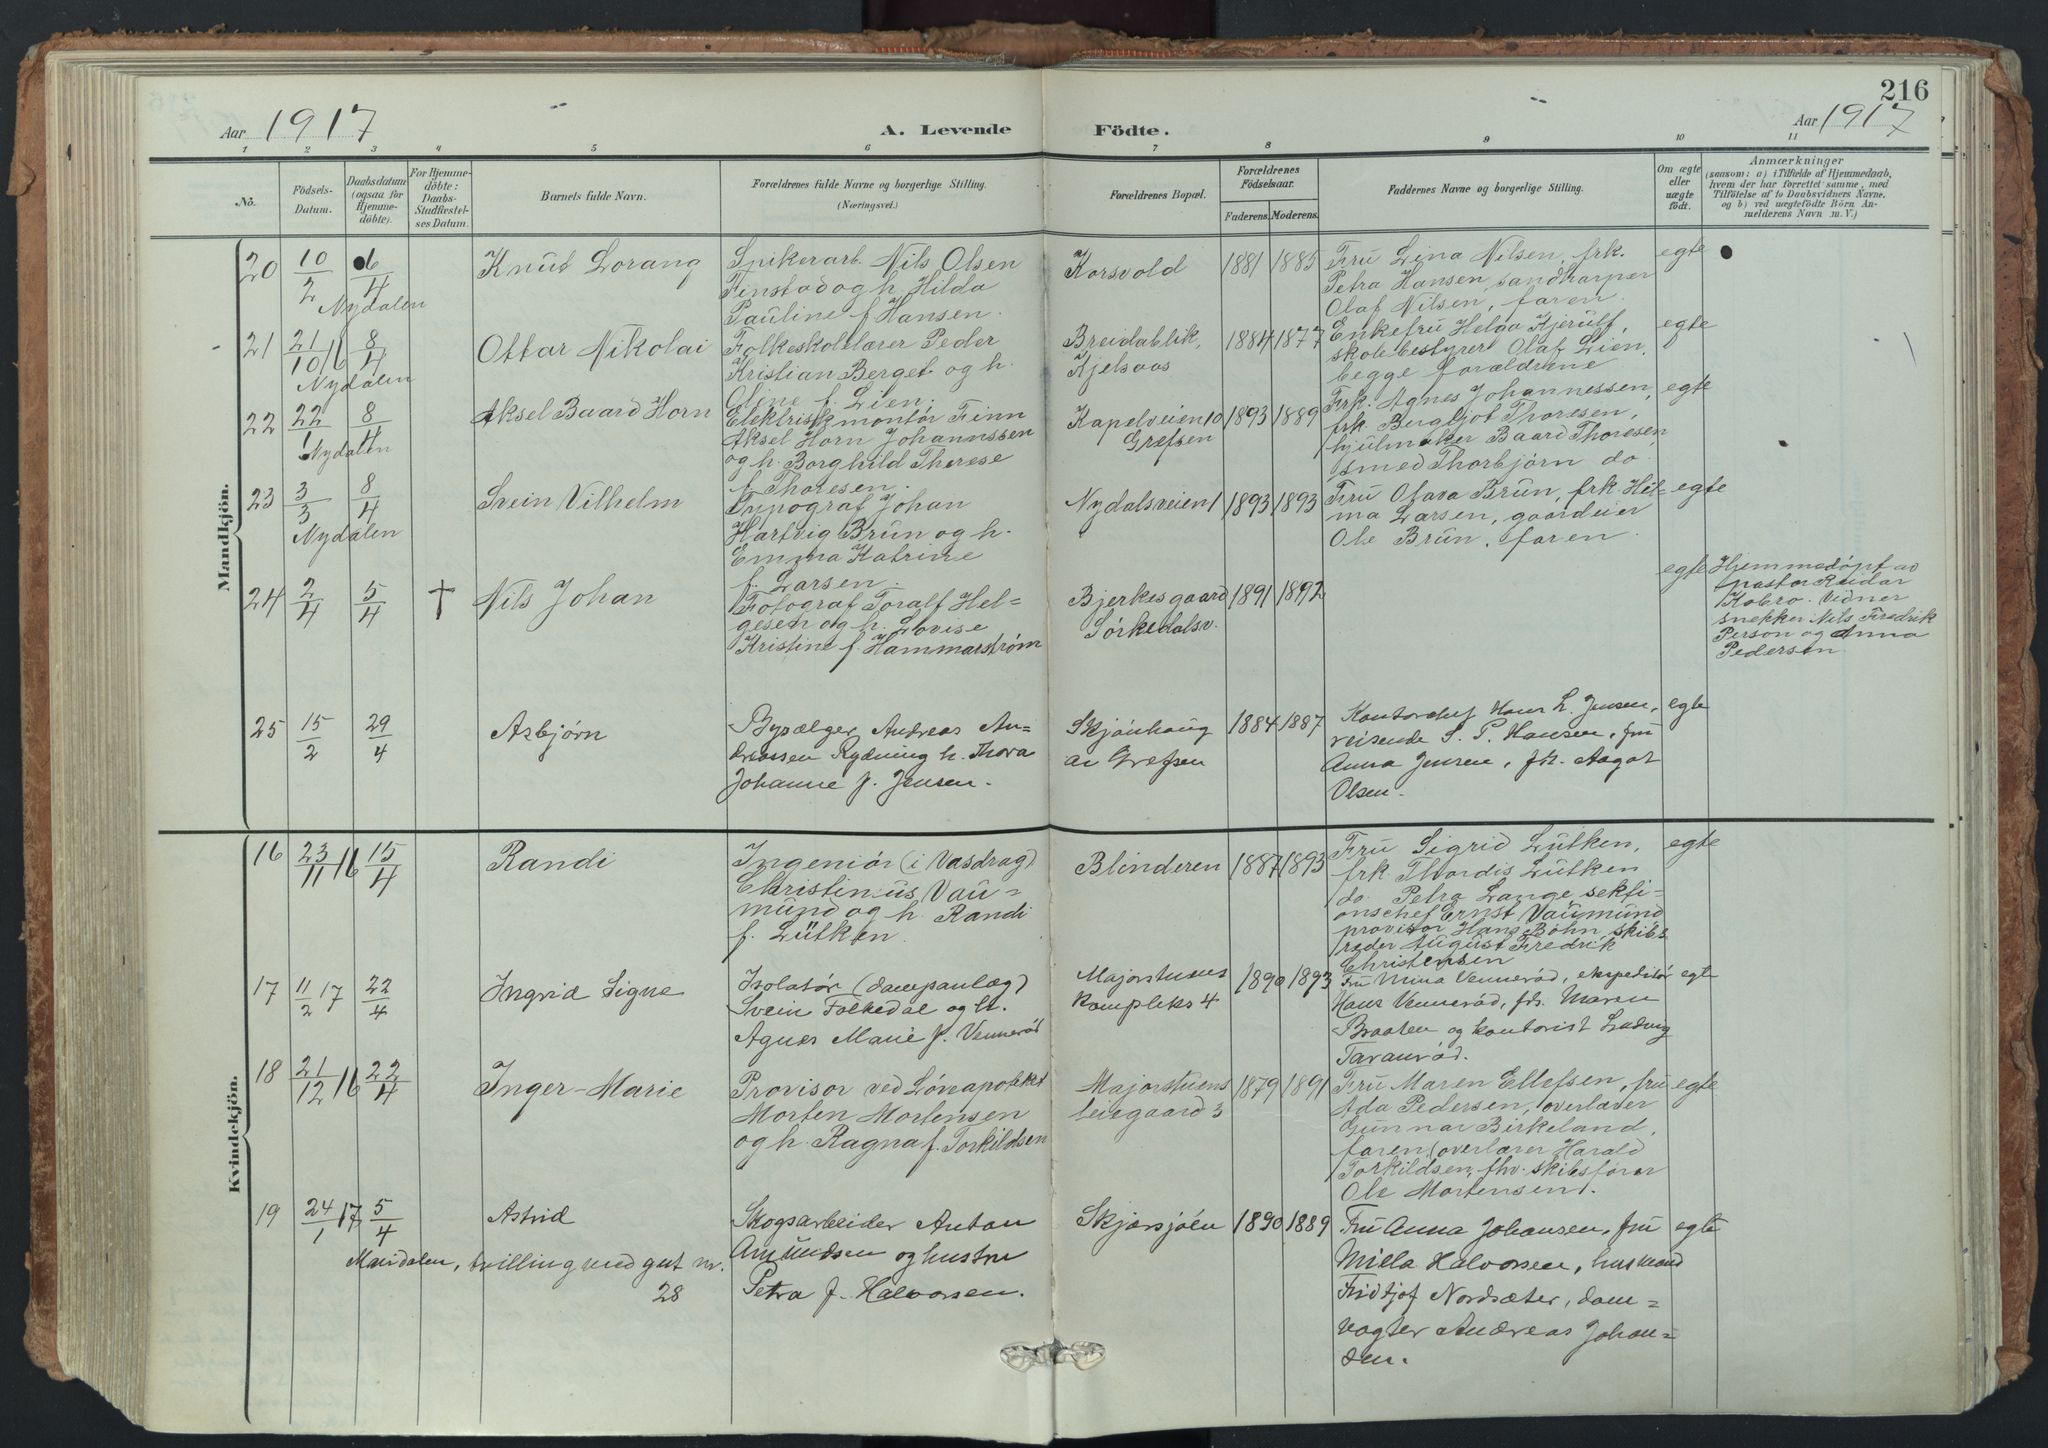 216
Aar 1917
A. Levende
Födte.
Aar 1917
1 2 3 4 5 6 7 8 9 10 11
No.
Födsels-
Datum.
Daabsdatum
(ogsaa for
Hjemme-
döbte).
For Hjemme-
döbte:
Daabs-
Stadfæstel-
ses Datum.
Barnets fulde Navn.
Forældrenes fulde Navne og borgerlige Stilling.
(Næringsvei.)
Forældrenes Bopæl.
Forældrenes
Födselsaar.
Faderens. Moderens.
Faddernes Navne og borgerlige Stilling.
Om ægte
eller
uægte
födt.
Anmærkninger
(saasom: a) i Tilfælde af Hjemmedaab,
hvem der har forrettet samme, med
Tilföielse af to Daabsvidners Navne,
og b) ved uægtefödte Börn An-
melderens Navn m. V.)
Mandkjön.
20 10/2 6/4
Nydalen
Knut Lorang
Spikerarb. Nils Olsen
Finstad og h. Hilda
Pauline f. Hansen.
Korsvold
1881 1885
Fru Lina Nilsen, frk.
Petra Hansen, sandharper
Olaf Nilsen, faren.
egte
21 21/10 16 8/4
Nydalen
Ottar Nikolai
Folkeskolelærer Peder
Kristian Berget og h.
Oline f. Lien.
Breidablik,
Kjelsaas
1884 1877
Enkefru Helga Kjerulf,
skolebestyrer Olaf Lien,
begge forældrene
egte
22 22/1 8/4
Nydalen
Aksel Baard Horn
Elektrisk montør Finn
Aksel Horn Johannssen
og h. Borghild Therese
f. Thoresen.
Kapelveien 10
Grefsen
1893 1889
Frk. Agnes Johannessen,
frk Bergljot Thoresen,
hjulmaker Baard Thoresen
smed Thorbjørn do.
egte
23 3/3 8/4
Nydalen
Svein Vilhelm
Typograf Johan
Hartvig Brun og h.
Emma Katrine
f. Larsen.
Nydalsveien 1
1893 1893
Fru Olava Brun, frk Hil-
ma Larsen, gaardeier
Ole Brun, faren.
egte
24 2/4 5/4 †
Nils Johan
Fotograf Toralf Hel-
gesen og h. Lovise
Kristine f. Hammarstrøm
Bjerkesgaard
Sørkedalsv.
1891 1892
egte
Hjemmedøpt av
pastor Reidar
Kobro. Vidner
snekker Nils Fredrik
Person og Anna
Pedersen
25 15/2 29/4
Asbjørn
Bysælger Andreas An-
dreassen Rydning h. Thora
Johanne f. Jensen.
Skjønhaug
av Grefsen
1884 1887
Kontorchef Hans L. Jensen,
reisende S. P. Hansen, fru
Anna Jensen, frk. Aagot
Olsen.
egte
Kvindekjön.
16 23/11 16 15/4
Randi
Ingeniør (i Vasdrag)
Christinius Vau-
mund og h. Randi
f. Lütken.
Blinderen
1887 1893
Fru Sigrid Lütken,
frk. Thordis Lütken
do. Petra Lange sekti-
onschef Ernst Vaumund
provisor Hans Bøhn skibs
reder August Fredrik
Christensen
egte
17 11/2 17 22/4
Ingrid Signe
Isolatør (dampanlæg)
Svein Folkedal og h.
Agnes Marie f. Vennerød
Majorstuens
kompleks 4
1890 1893
Fru Mina Vennerød, ekspeditør
Hans Vennerød, frk. Maren
Braaten og kontorist Ludvig
Taranrød.
egte
18 21/12 16 22/4
Inger-Marie
Provisor ved Løveapoteket
Morten Mortensen
og h. Ragna f. Torkildsen
Majorstuens
leiegaard 3
1879 1891
Fru Maren Ellefsen, fru
Ada Pedersen, overlærer
Gunnar Birkeland,
faren (overlærer Harald
Torkildsen, fhv. skibsfører
Ole Mortensen).
egte
19 24/1 17 5/4
Astrid
Maridalen, tvilling med gut nr.
28
Skogsarbeider Anton
Amundsen og hustru
Petra f. Halvorsen.
Skjærsjøen
1890 1889
Fru Anna Johansen, fru
Milla Halvorsen, husmand
Fridtjof Nordsæter, dam-
vogter Andreas Johan-
sen.
egte